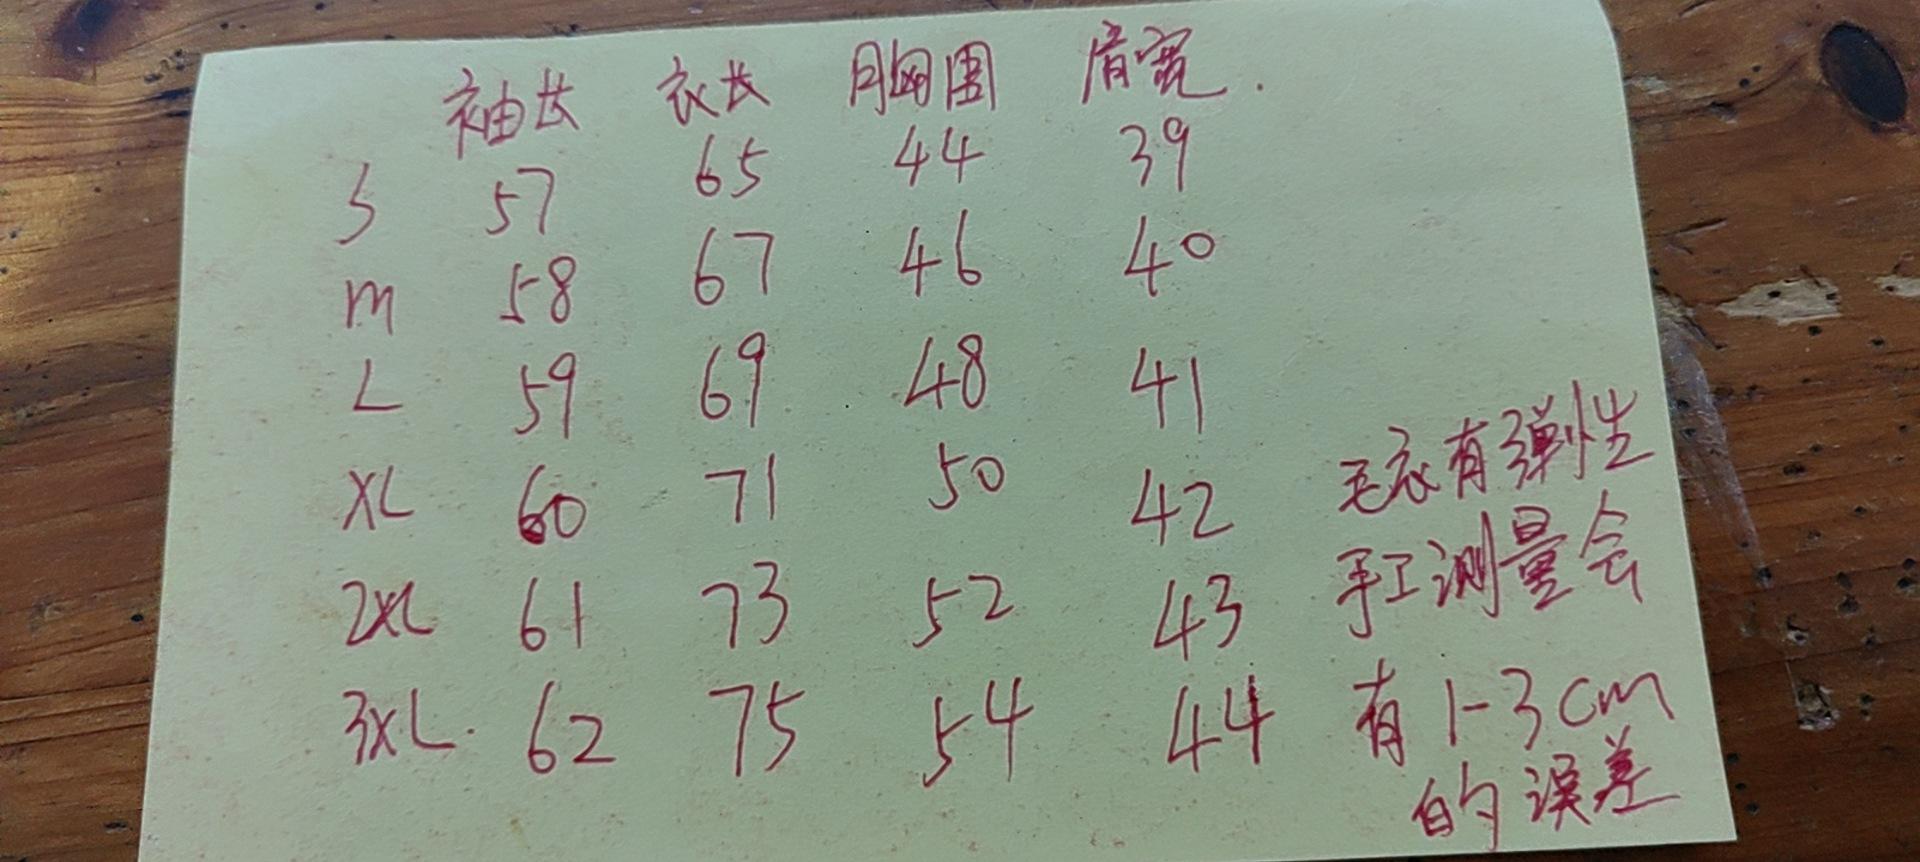 袖长 衣长 胸围 肩宽.
S 57 65 44 39
m 58 67 46 40
L 59 69 48 41
XL 60 71 50 42
2XL 61 73 52 43
3XL. 62 75 54 44
毛衣有弹性
手工测量会
有1-3cm
的误差